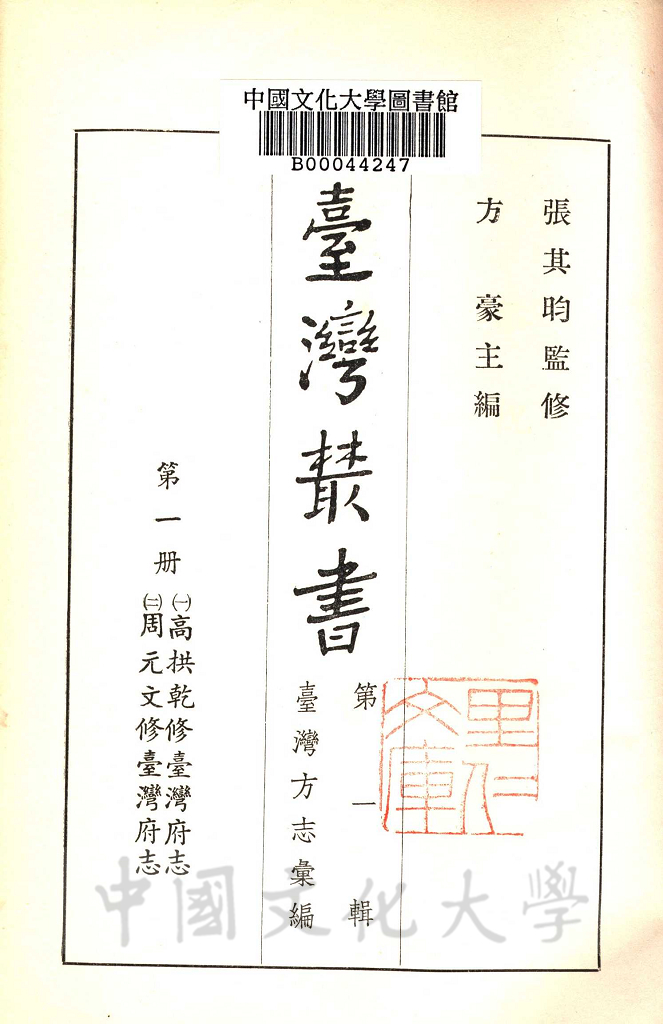 中國文化大學圖書館
B00044247
張其昀監修
方豪主編
臺灣叢書
第一輯
臺灣方志彙編
第一册
㈠高拱乾修臺灣府志
㈡周元文修臺灣府志
里仁文庫
中國文化大學